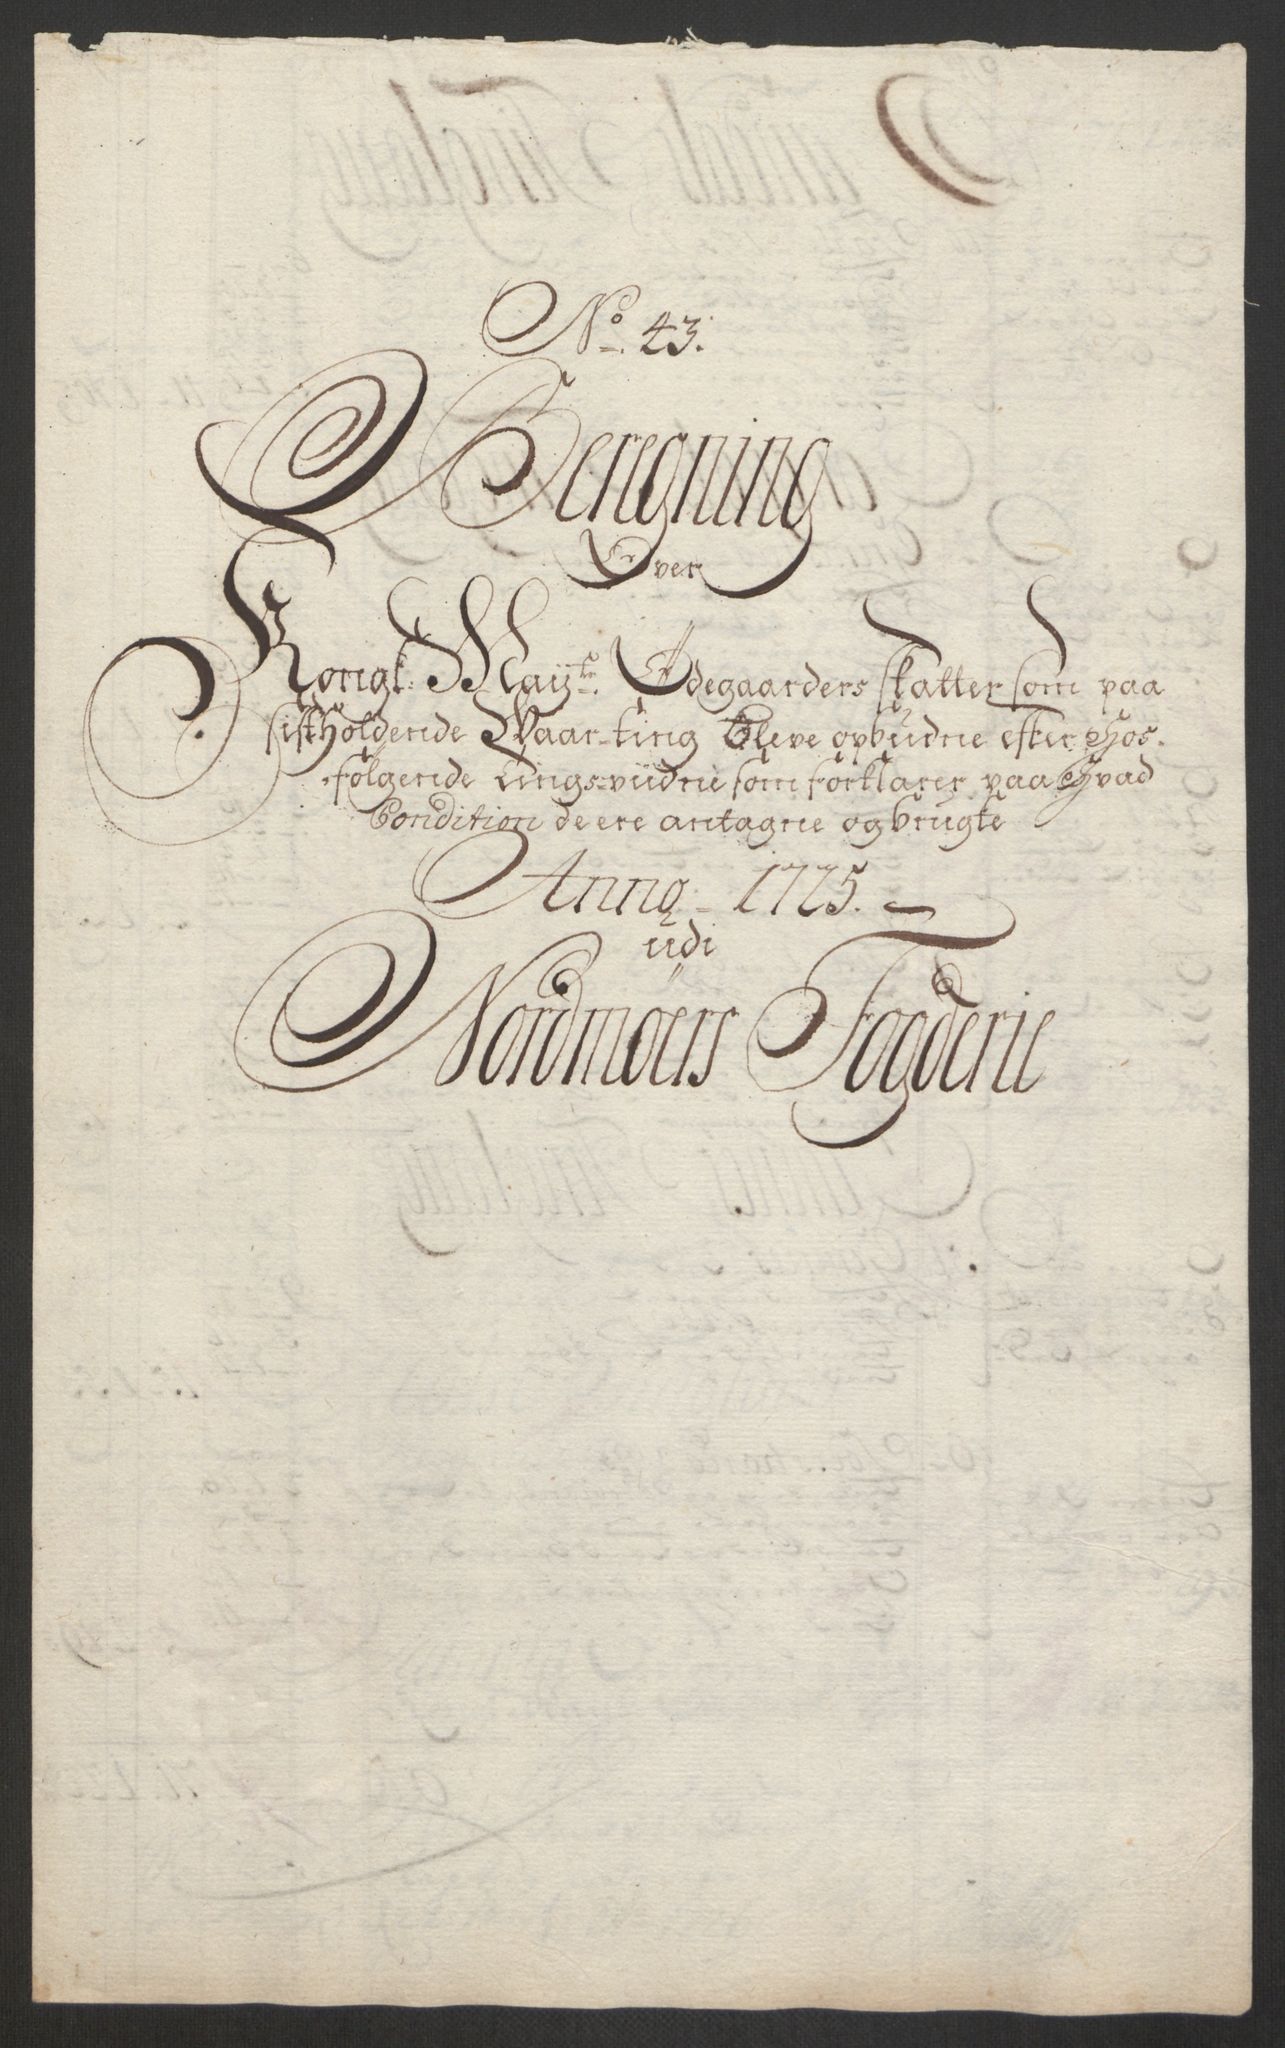 No. 43.
Beregning
Over
Kongl. Mayts. Ødegaarders skatter som paa
sistholdende Waar-ting bleve opbudne efter Hos-
følgende tings-vudne som forklarer paa Hvad
Condition de ere antagne og brugte
Anno 1725.
udi
Nordmøers Fogderie